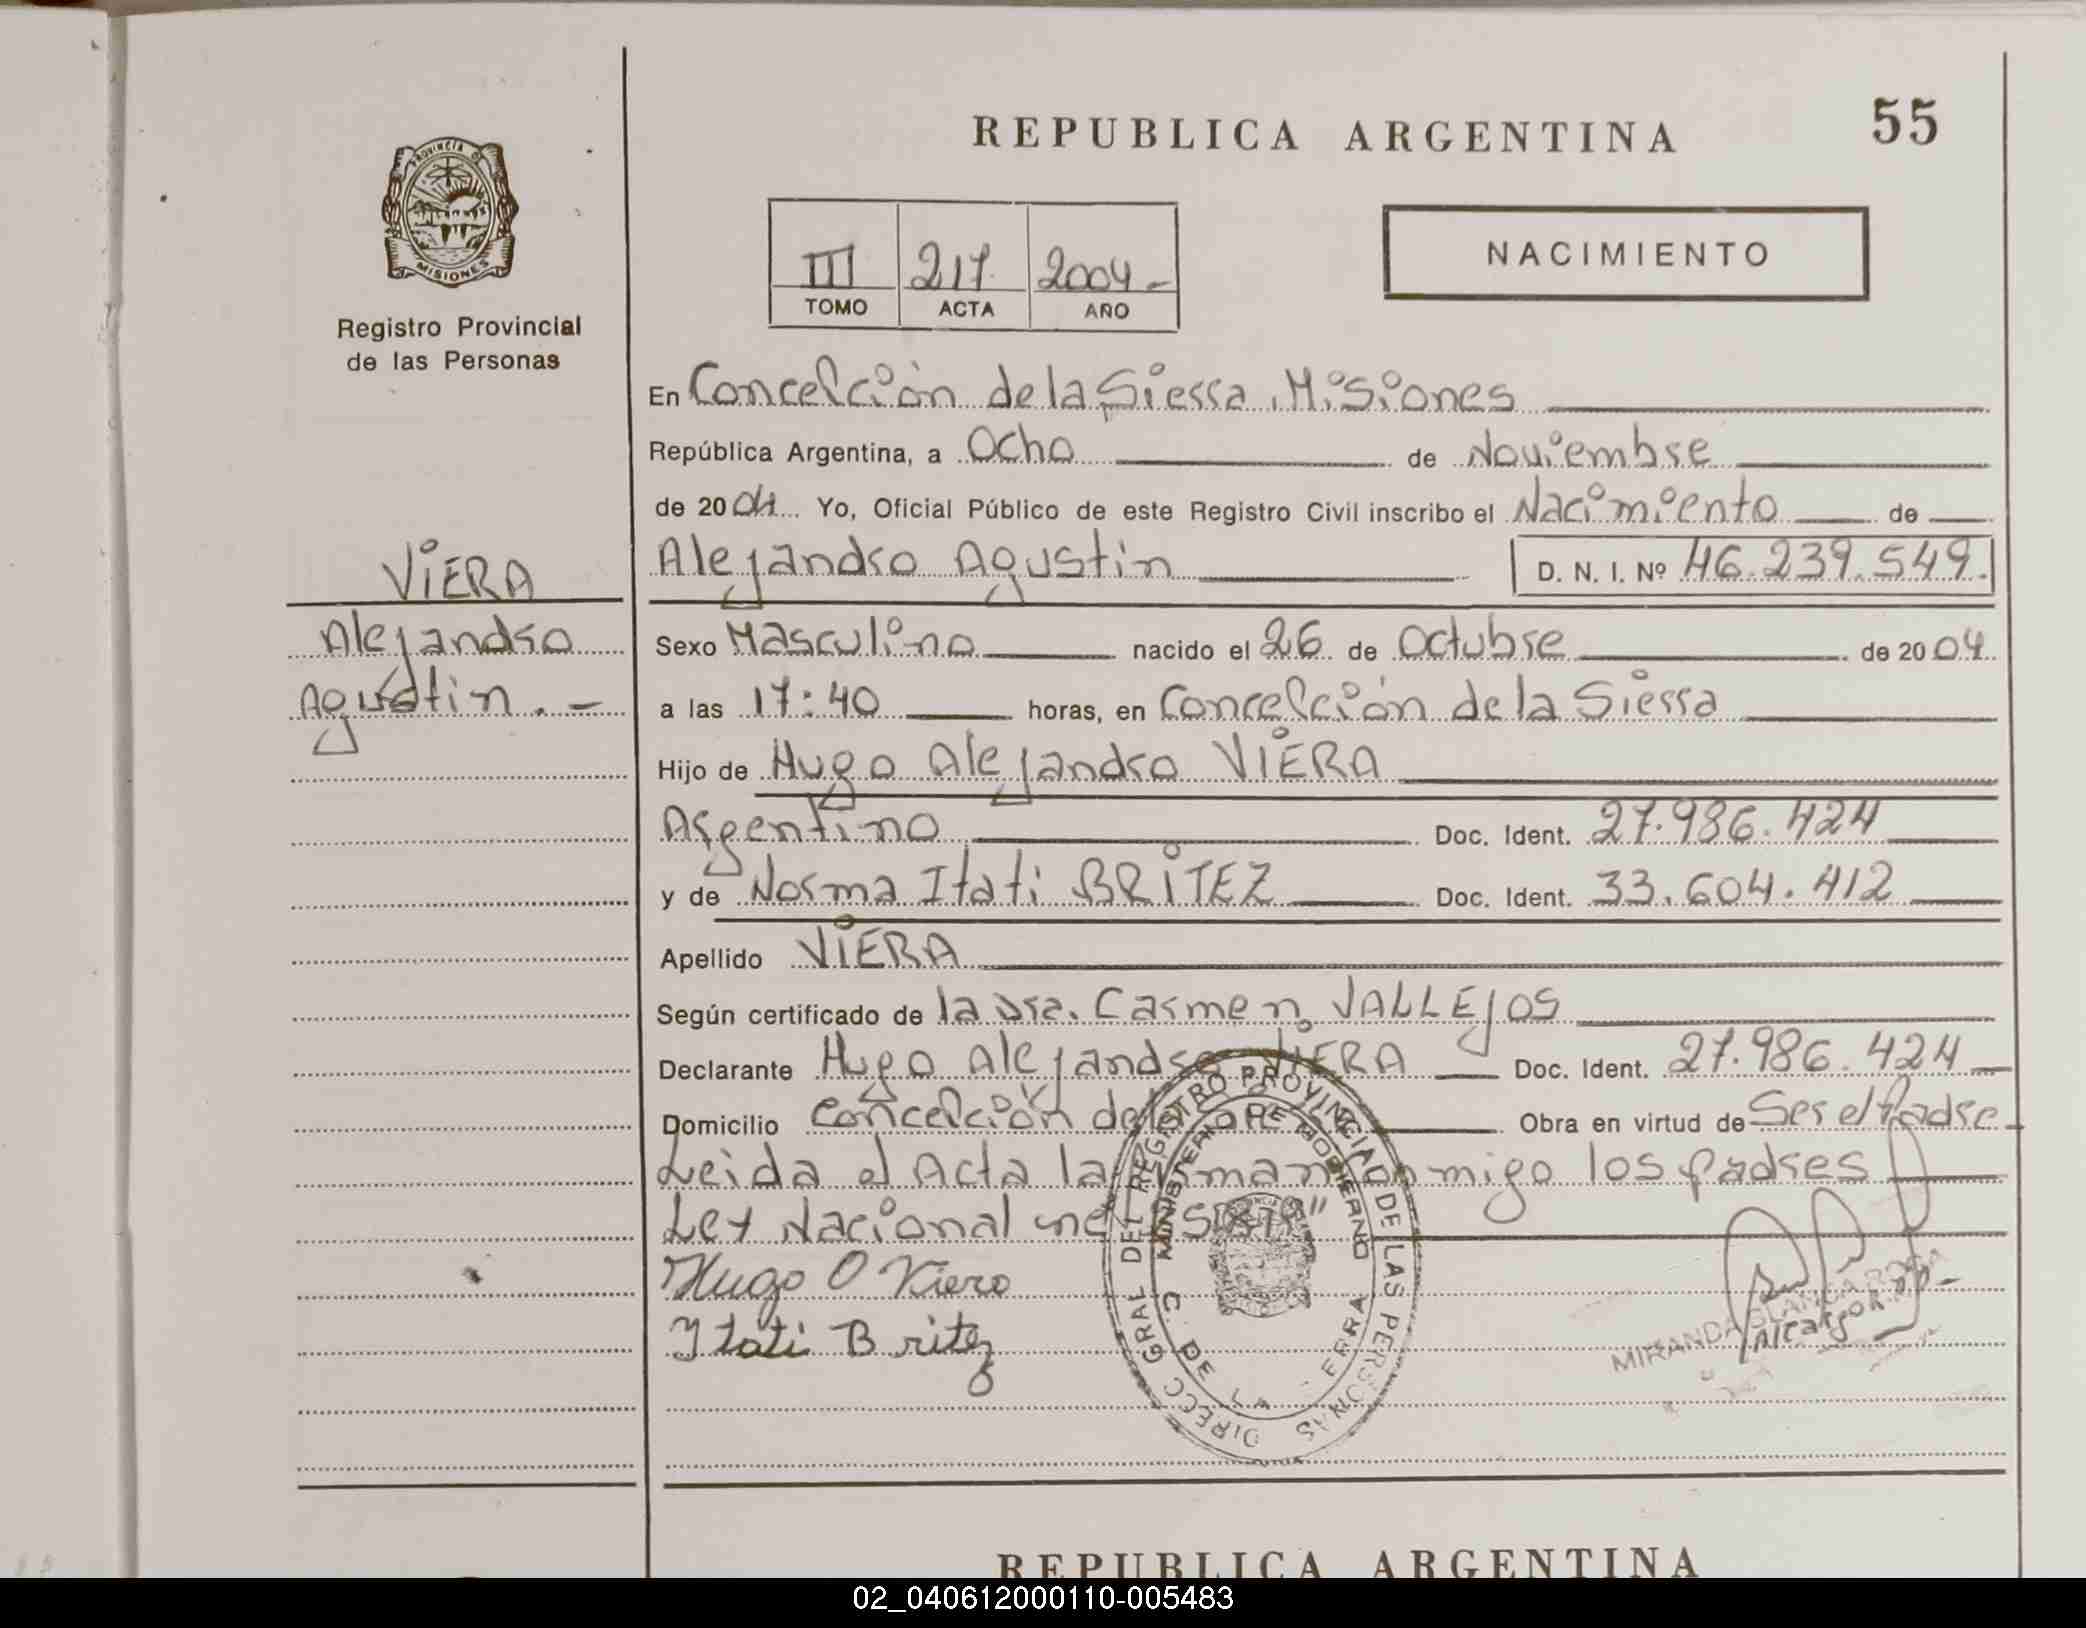 REPUBLICA ARGENTINA
55
PROVINCIA DE
MISIONES
Registro Provincial
de las Personas
III 217 2004-
TOMO ACTA AÑO
NACIMIENTO
En Concepción de la Sierra, Misiones
República Argentina, a Ocho de Noviembre
de 2004 Yo, Oficial Público de este Registro Civil inscribo el Nacimiento de
VIERA
Alejandro
Agustin.-
Alejandro Agustin D. N. I. Nº 46.239.549.
Sexo Masculino nacido el 26 de Octubre de 2004
a las 17:40 horas, en Concepción de la Sierra
Hijo de Hugo Alejandro VIERA
Argentino Doc. Ident. 27.986.424
y de Norma Itati BRITEZ Doc. Ident. 33.604.412
Apellido VIERA
Según certificado de la Dra. Carmen VALLEJOS
Declarante Hugo Alejandro VIERA Doc. Ident. 27.986.424
Domicilio Concepción de la Obra en virtud de Ser el Padre
Leida el Acta la firman conmigo los padres
Ley Nacional
Hugo A Viera
Itati Britez
DIRECC GRAL DEL REGISTRO PROVINCIAL DE LAS PERSONAS
MINISTERIO DE GOBIERNO
C. DE LA
MIRANDA BLANCA ROSA
REPUBLICA ARGENTINA
02_040612000110-005483